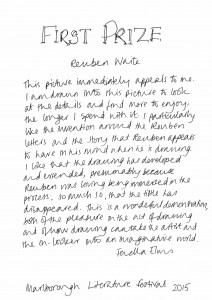 FIRST PRIZE
Reuben Waite
This picture immediately appeals to me.
I am drawn into this picture to look
at the details and find more to enjoy
the longer I spend with it. I particularly
like the invention around the Reuben
letters and the story that Reuben appears
to have in his mind when he is drawing.
I like that the drawing has developed
and extended, presumably because
Reuben was loving being immersed in the
process, so much so, that the title has
disappeared. This is a wonderful demonstration
both of the pleasure in the act of drawing
and of how drawing can take the artist and
the on-looker into an imaginative world.
Marlborough Literature Festival 2015